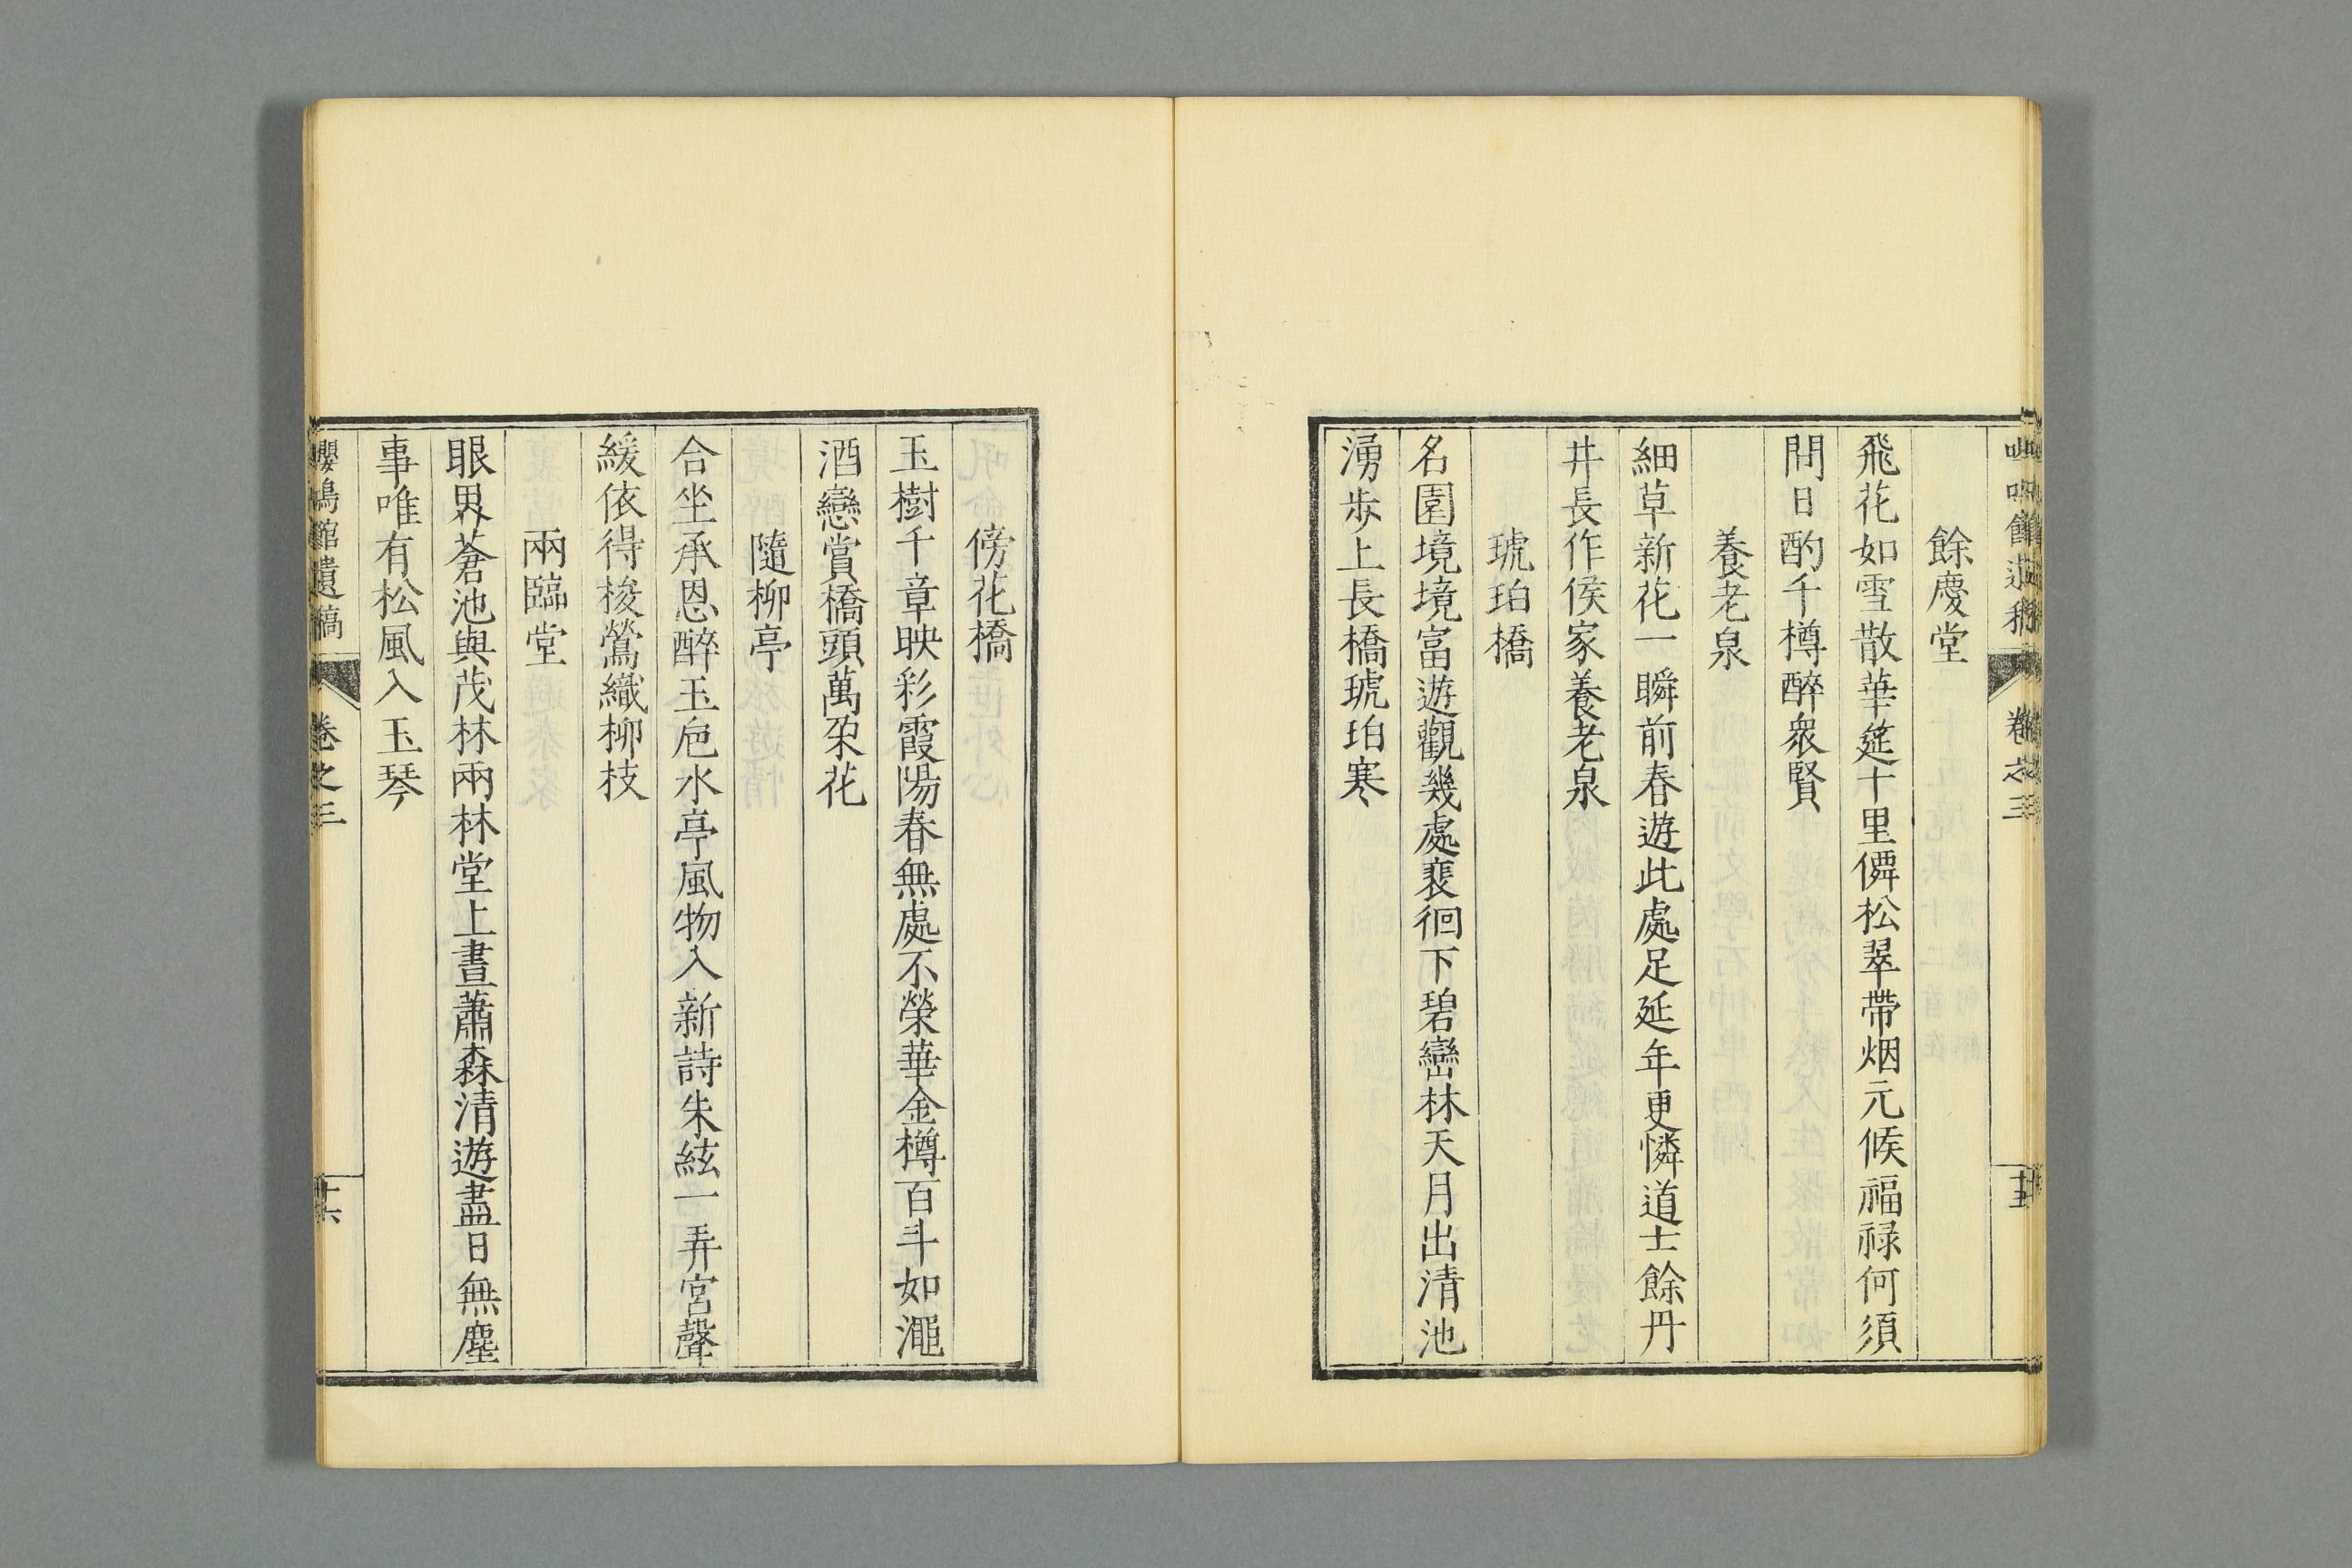 餘慶堂
飛花如雪散華筵十里僲松翠帶烟元候福禄何須
問日酌千樽醉衆賢
養老泉
細草新花一瞬前春遊此處足延年更憐道士餘丹
井長作侯家養老泉
琥珀橋
名園境境富遊觀幾處裴徊下碧巒林天月出清池
湧歩上長橋琥珀寒
傍花橋
玉樹千章映彩霞陽春無處不榮華金樽百斗如澠
酒戀賞橋頭萬朶花
隨柳亭
合坐承恩醉玉巵水亭風物入新詩朱絃一弄宮聲
緩依得梭鶯織柳枝
兩臨堂
眼界蒼池與茂林兩林堂上晝蕭森清遊盡日無塵
事唯有松風入玉琴
嚶鳴館遺稿
卷之三
十六